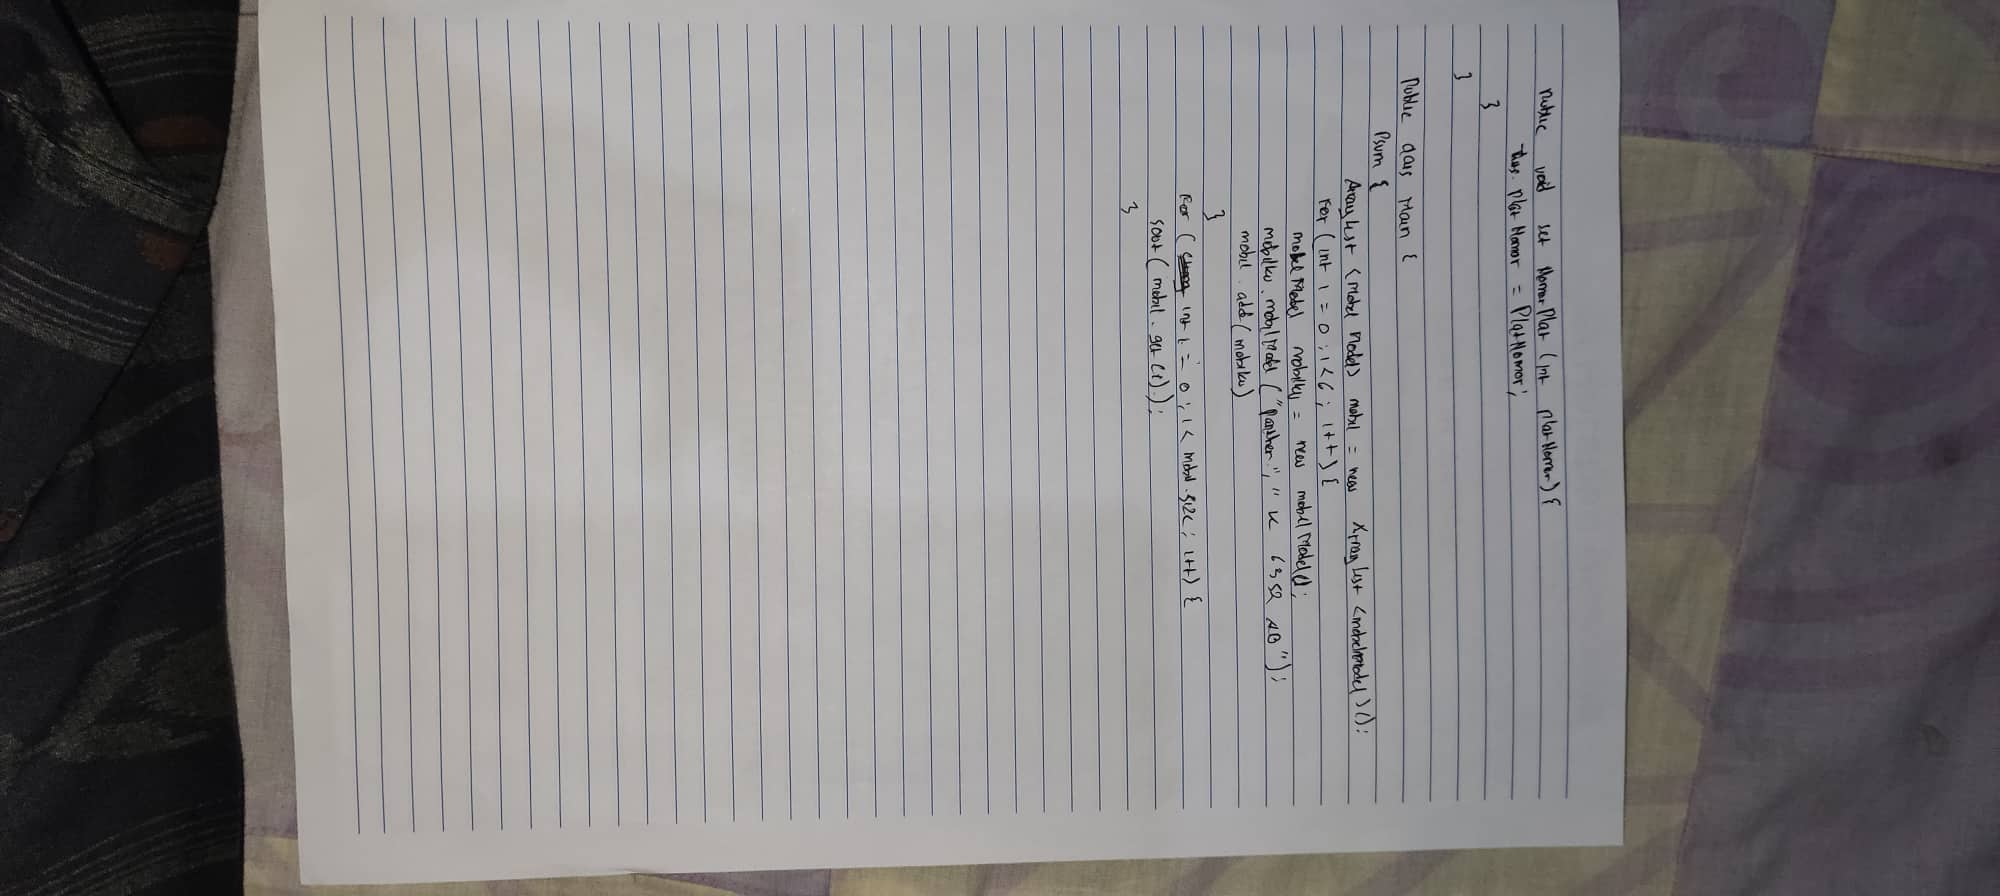 public void set NomorPlat (int platNomor) {
this. plat Nomor = PlatNomor;
}
}
Public class Main {
Psvm {
ArrayList <Mobil Model> mobil = new ArrayList <mobilmodel>();
For (int i = 0 ; i < 6 ; i++) {
mobil Model mobilku = new mobil Model();
mobilku. mobil Model ("panther", " K 6352 AB");
mobil . add (mobilku)
}
For ( int i = 0 ; i < mobil. size ; i++) {
sout ( mobil. get (i) );
}